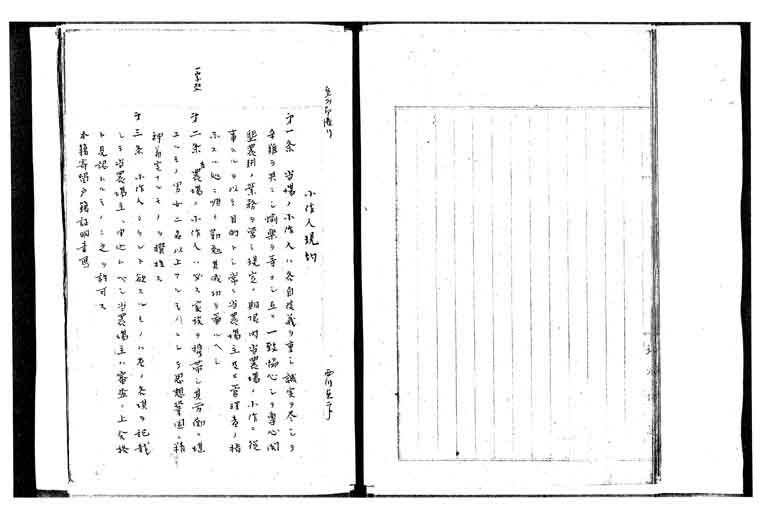 小作人規約
第一条 当場ノ小作人ハ各自徳義ヲ重シ誠実ヲ尽シテ
辛難ヲ共ニシ愉楽ヲ等フシ互ニ一致協心シテ専心開
墾農耕ノ業務ヲ営ミ規定ノ期限内当農場ノ小作ニ従
事スルヲ以テ目的トシ常ニ当農場主及ビ管理者ノ指
示スル処ニ順ヒ勤勉其成功ヲ
第二条 当農場ノ小作人ハ必ス家族ヲ携帯シ其労働ニ堪
ユルモノ男女二名以上アルモノニシテ思想鞏固ニ精
神着実ナルモノヲ撰抜ス
第三条 小作人タラント欲スルモノハ左ノ各項ヲ記載
シテ当農場主ニ申込ムベシ当農場主ハ審査ノ上
ト見認トルモノニ之ヲ許可ス
本籍寄留戸籍証明書写